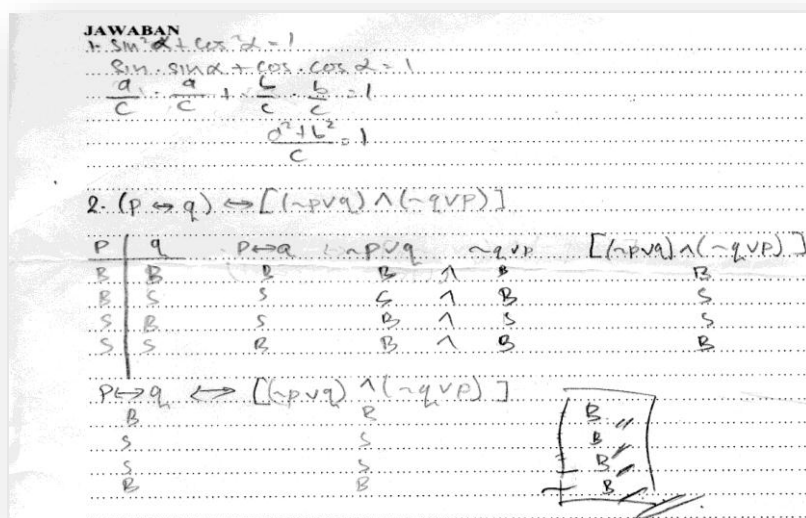 JAWABAN
1. Sin²α + cos²α = 1
Sin · sin α + cos · cos α = 1
a/c · a/c + b/c · b/c = 1
a² + b² / c = 1
2. (p ↔ q) ↔ [(~p∨q) ∧ (~q∨p)]
P q P↔q ~p∨q ~q∨p [(~p∨q) ∧ (~q∨p)]
B B B B ∧ B B
B S S S ∧ B S
S B S B ∧ S S
S S B B ∧ B B
P↔q ↔ [(~p∨q) ∧ (~q∨p)]
B B B
S S B
S S B
B B B